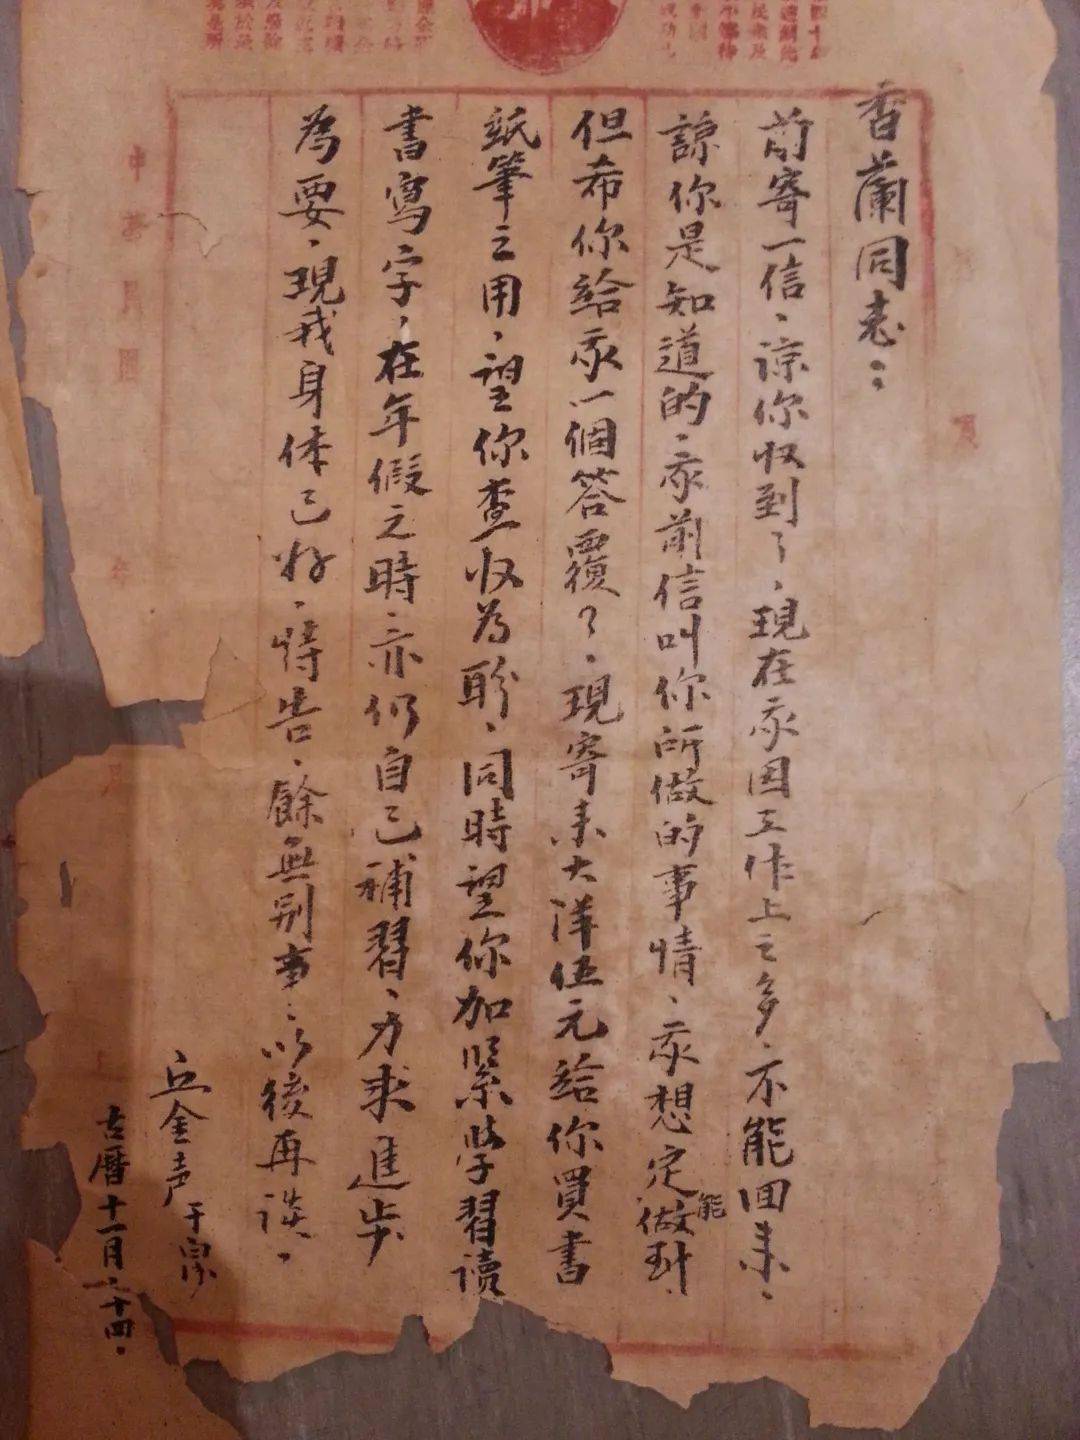 香蘭同志：
前寄一信、諒你收到了，現在我因工作上之多、不能回来、
諒你是知道的、我前信叫你所做的事情、我想定能做到
但希你給我一個答覆？、現寄来大洋伍元給你買書
紙筆之用、望你查收為盼、同時望你加緊學習读
書寫字，在年假之時、亦仍自己補習、方求進步
為要、現我身体已好、特告、餘無别事、以後再谈、
丘金声于
古曆十一月二十四、
中華民國 年
月